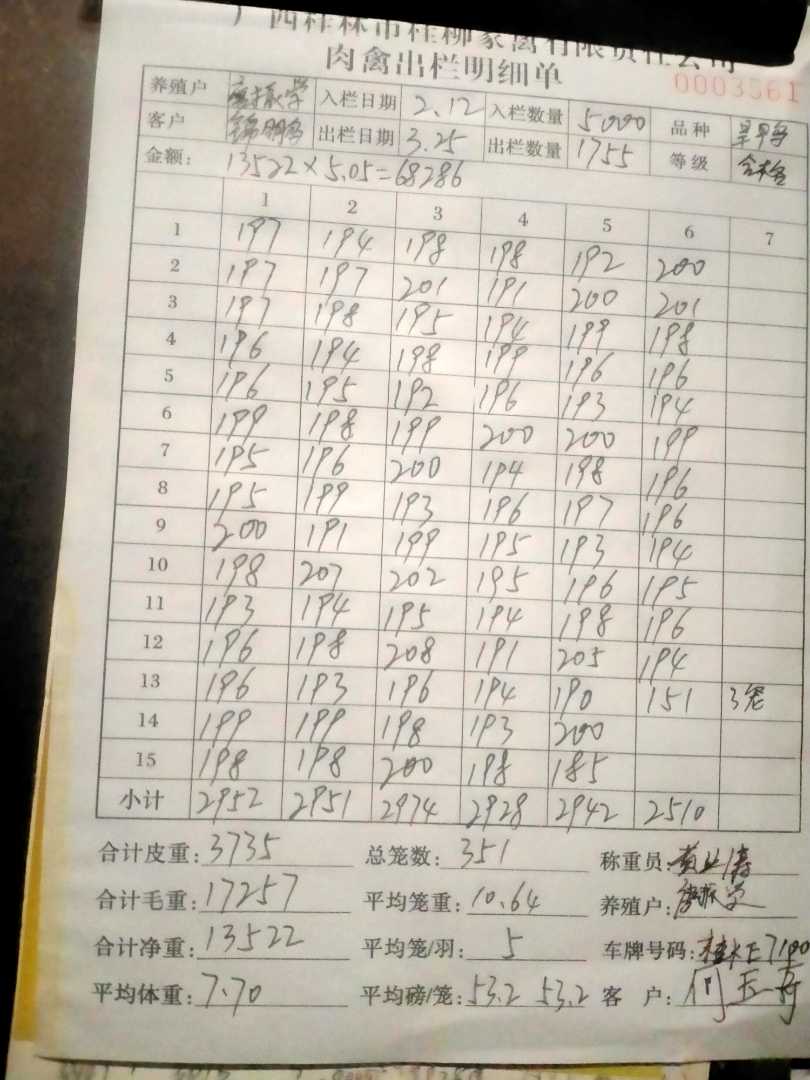 广西桂林市桂柳家禽有限责任公司
肉禽出栏明细单
0003561
养殖户 入栏日期 2.12 入栏数量 5000 品种
客户 出栏日期 3.25 出栏数量 1755 等级 合格
金额: 13522×5.05=68286
1 2 3 4 5 6 7
1 197 194 198 198 192 200
2 197 197 201 191 200 201
3 197 198 195 194 199 198
4 196 194 198 199 196 196
5 196 195 192 196 193 194
6 199 198 199 200 200 199
7 195 196 200 194 198 196
8 195 199 193 196 197 196
9 200 191 199 195 193 194
10 198 207 202 195 196 195
11 193 194 195 194 198 196
12 196 198 208 191 205 194
13 196 193 196 194 190 151 3笼
14 199 199 198 193 200
15 198 198 200 198 185
小计 2952 2951 2974 2928 2942 2510
合计皮重: 3735 总笼数: 351 称重员:
合计毛重: 17257 平均笼重: 10.64 养殖户:
合计净重: 13522 平均笼/羽: 5 车牌号码:
平均体重: 7.70 平均磅/笼: 53.2 53.2 客户: